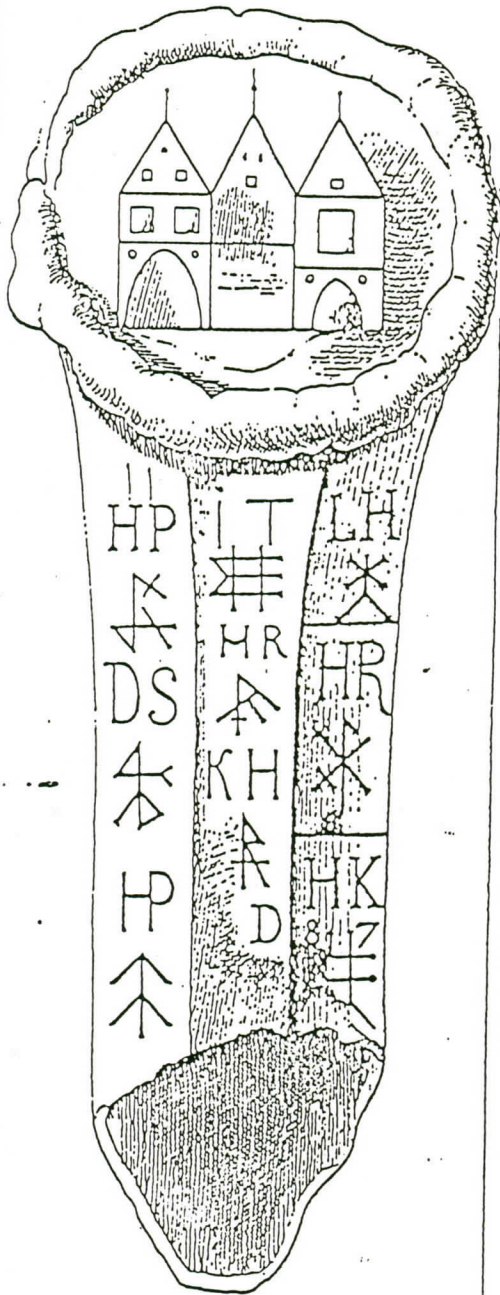 HP
DS
HP
IT
HR
KH
D
LH
HR
HK
8 7